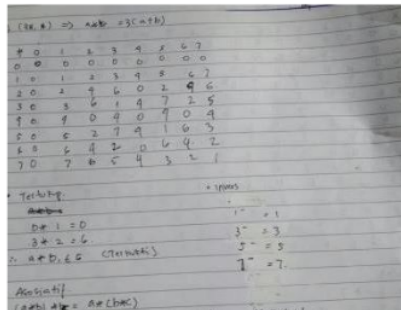 => a*b = 3(a+b)
* 0 1 2 3 4 5 6 7
0 0 0 0 0 0 0 0 0
1 0 1 2 3 4 5 6 7
2 0 2 4 6 0 2 4 6
3 0 3 6 1 4 7 2 5
4 0 4 0 4 0 4 0 4
5 0 5 2 7 4 1 6 3
6 0 6 4 2 0 6 4 2
7 0 7 6 5 4 3 2 1
• Tertutup.
0 * 1 = 0
3 * 2 = 6
∴ a * b, ∈ S (Tertutup)
Asosiatif
(a*b)*c = a*(b*c)
• invers
1⁻ = 1
3⁻ = 3
5⁻ = 5
7⁻ = 7.